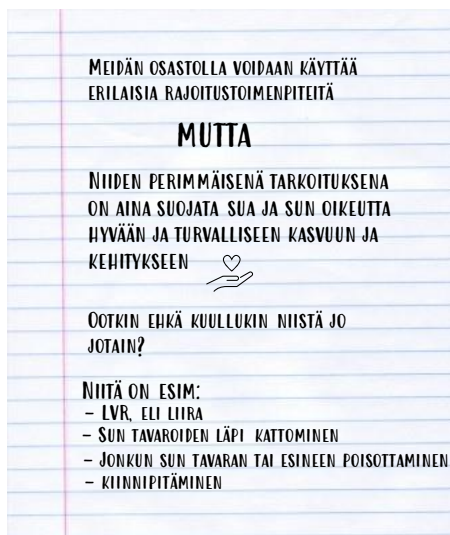 MEIDÄN OSASTOLLA VOIDAAN KÄYTTÄÄ
ERILAISIA RAJOITUSTOIMENPITEITÄ
MUTTA
NIIDEN PERIMMÄISENÄ TARKOITUKSENA
ON AINA SUOJATA SUA JA SUN OIKEUTTA
HYVÄÄN JA TURVALLISEEN KASVUUN JA
KEHITYKSEEN
OOTKIN EHKÄ KUULLUKIN NIISTÄ JO
JOTAIN?
NIITÄ ON ESIM:
- LVR, ELI LIIRA
- SUN TAVAROIDEN LÄPI KATTOMINEN
- JONKUN SUN TAVARAN TAI ESINEEN POISOTTAMINEN
- KIINNIPITÄMINEN